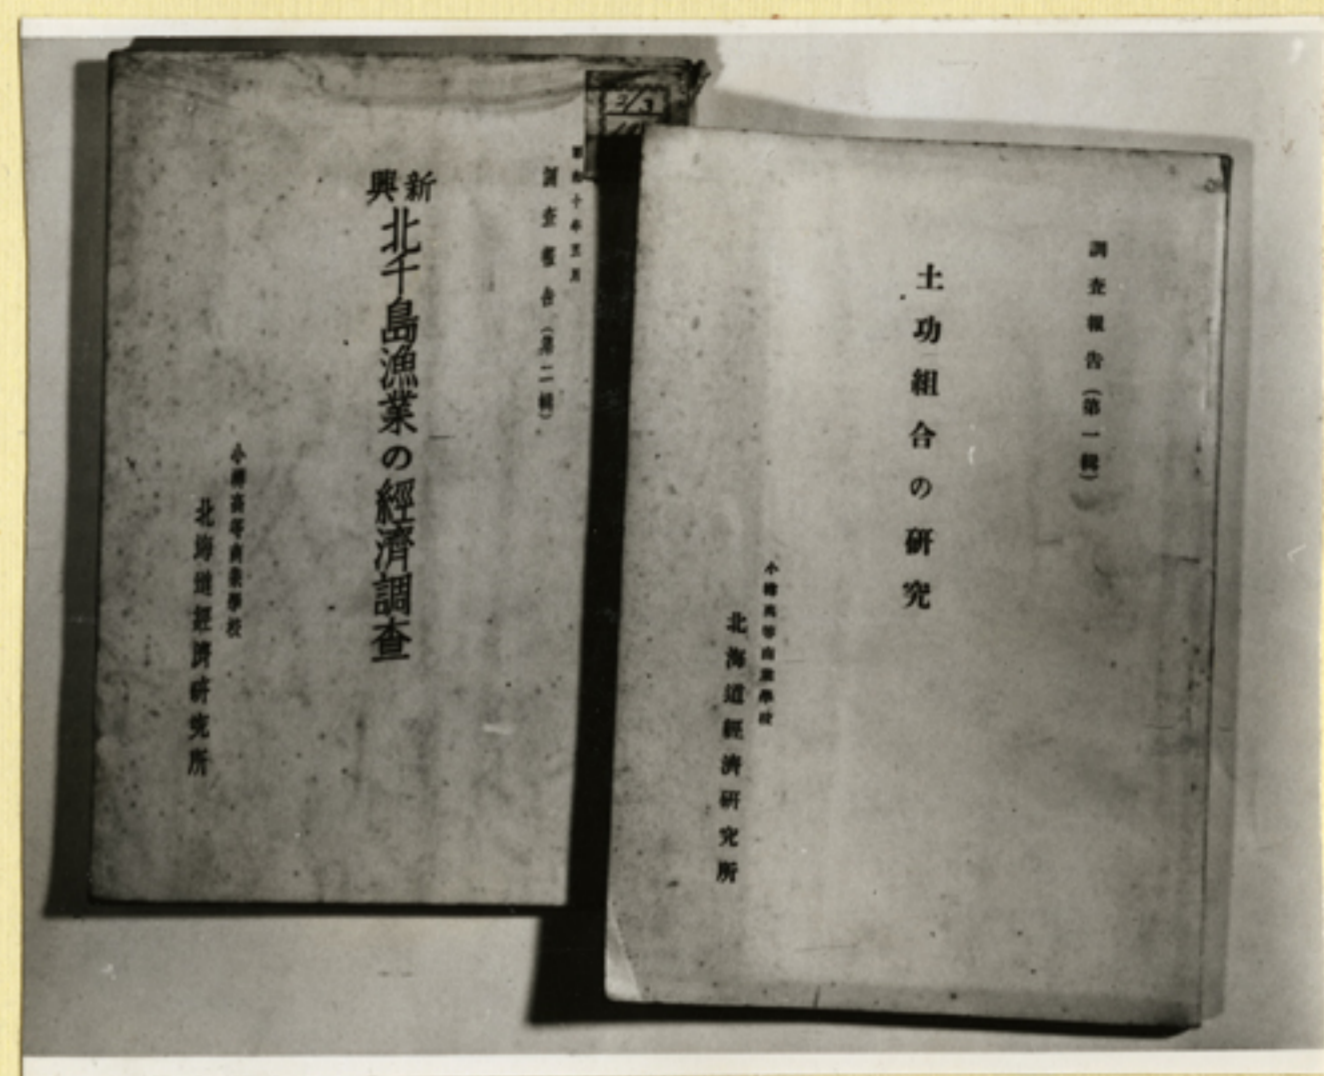 調査報告（第一輯）
土功組合の研究
小樽高等商業學校
北海道經濟研究所
昭和十年五月
調査報告（第二輯）
新興
北千島漁業の經濟調査
小樽高等商業學校
北海道經濟研究所